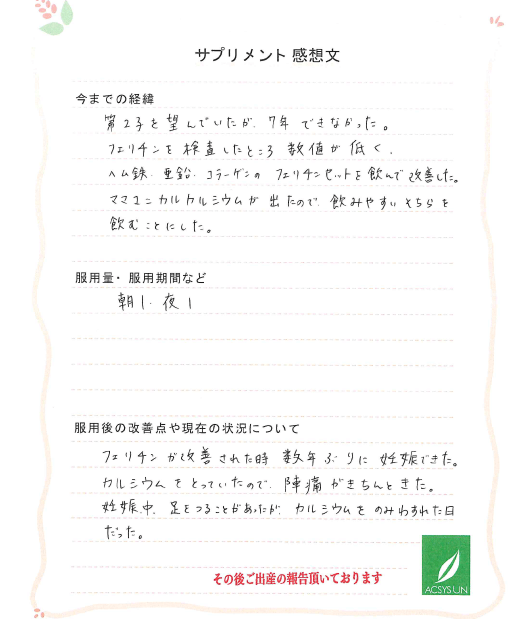 サプリメント 感想文
今までの経緯
第2子を望んでいたが、7年できなかった。
フェリチンを検査したところ数値が低く、
ヘム鉄、亜鉛、コラーゲンのフェリチンセットを飲んで改善した。
ママユニカルカルシウムが出たので、飲みやすいそちらを
飲むことにした。
服用量・服用期間など
朝1、夜1
服用後の改善点や現在の状況について
フェリチンが改善された時 数年ぶりに妊娠できた。
カルシウムをとっていたので、陣痛がきちんときた。
妊娠中、足をつることがあったが、カルシウムをのみわすれた日
だった。
その後ご出産の報告頂いております
ACSYSUN